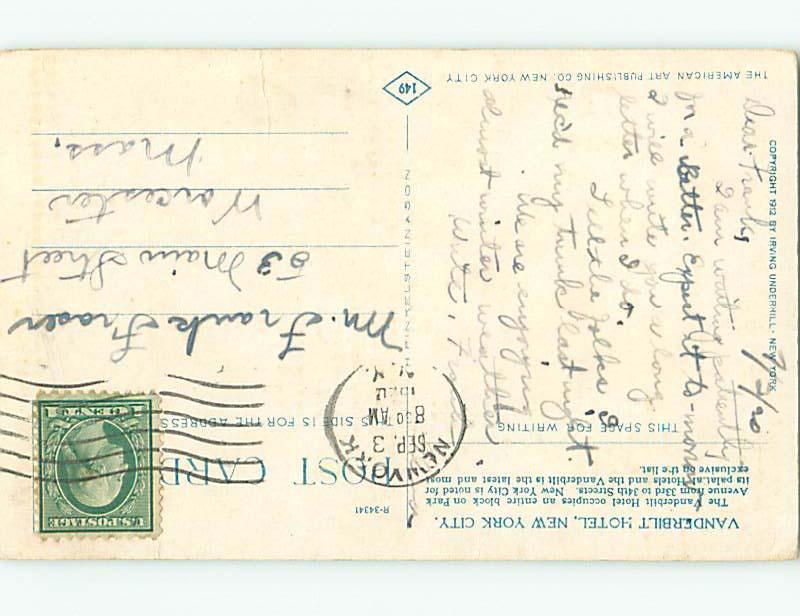 VANDERBILT HOTEL, NEW YORK CITY.
The Vanderbilt Hotel occupies an entire block on Park
Avenue from 33rd to 34th Streets. New York City is noted for
its palatial Hotels and the Vanderbilt is the latest and most
exclusive on the list.
R-34341
POST CARD
THIS SPACE FOR WRITING
THIS SIDE IS FOR THE ADDRESS
NEW YORK
SEP 3
8 30 AM
N.Y.
U.S. POSTAGE
1 CENT 1
9/2/20
Dear Frank,
I am waiting patiently
for a letter. Expect it to-morrow
I will write you a long
letter when I do.
folks
my trunk last night.
We are enjoying
almost winter weather.
Write,
Mr. Frank Fraser
53 Main Street
Worcester
Mass.
149
COPYRIGHT 1912 BY IRVING UNDERHILL - NEW YORK
THE AMERICAN ART PUBLISHING CO. NEW YORK CITY